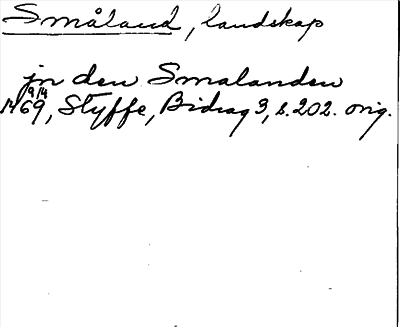 Småland, landskap
jn den Smalanden
9/4
1469, Styffe, Bidrag 3, s. 202. orig.